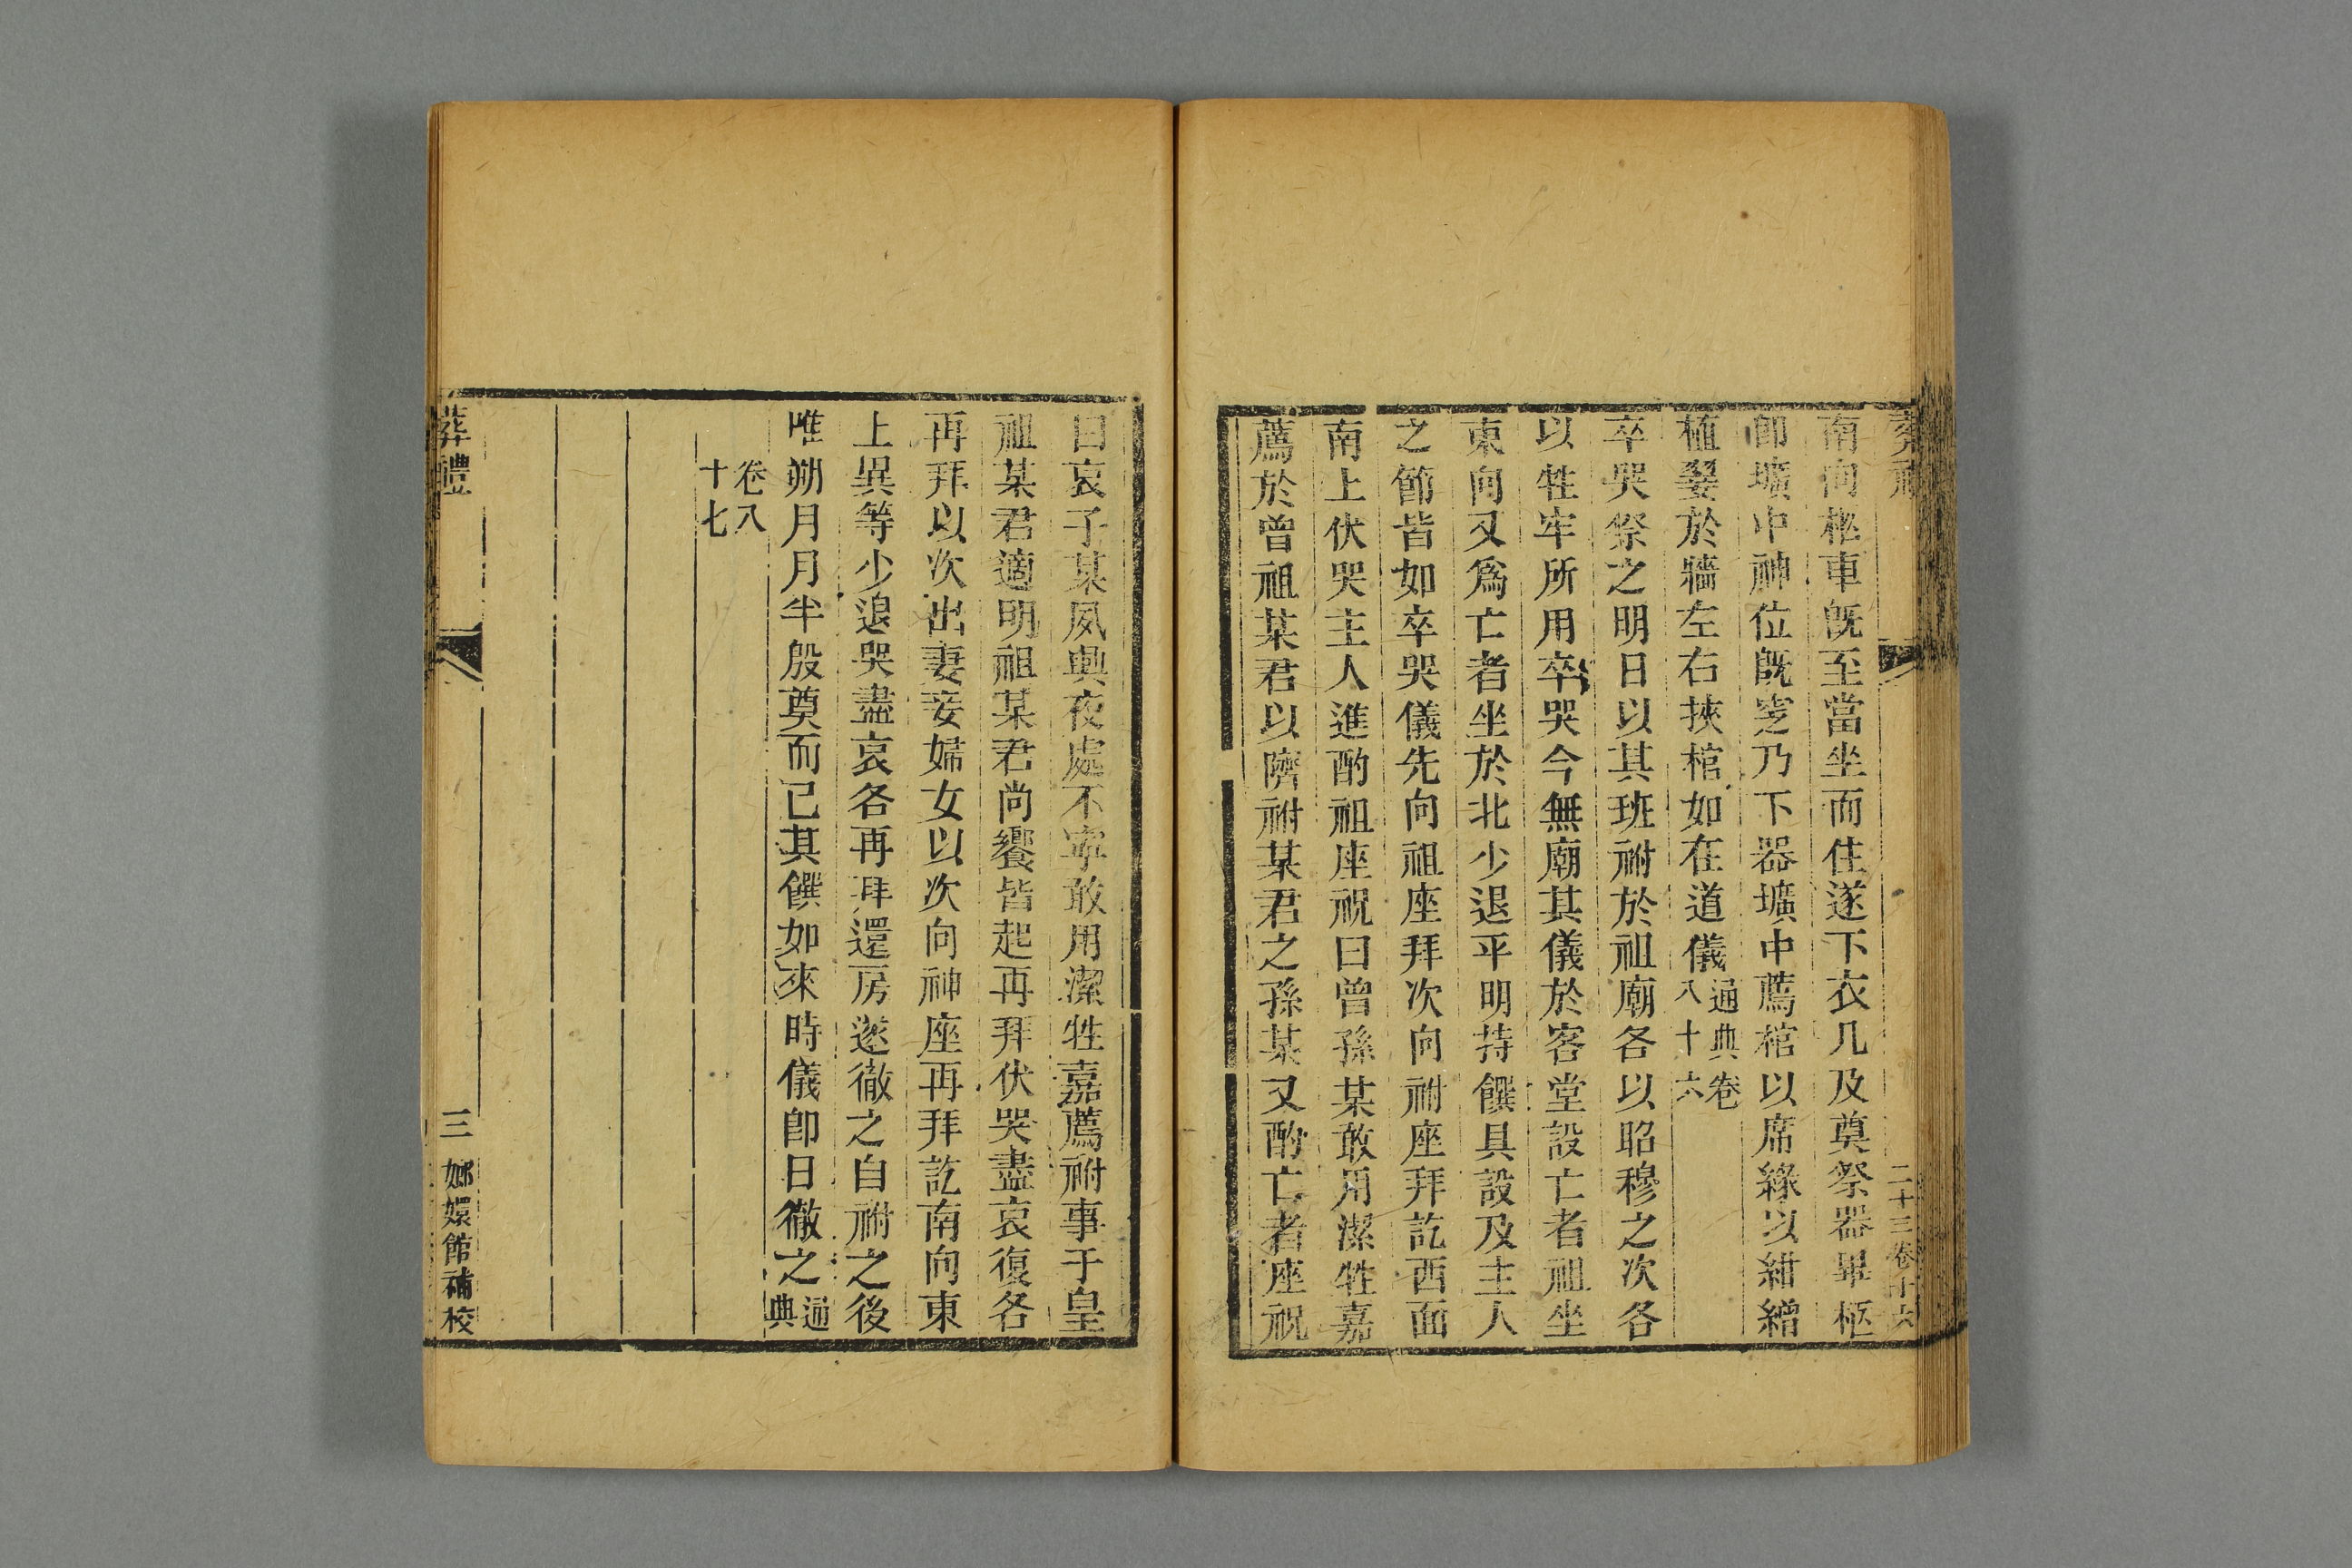 南向柩車既至當坐而住遂下衣几及奠祭器畢柩
卽壙中神位既窆乃下器壙中薦棺以席緣以紺繒
植翣於牆左右挾棺如在道儀通典卷八十六
卒哭祭之明日以其班祔於祖廟各以昭穆之次各
以牲牢所用卒哭今無廟其儀於客堂設亡者祖坐
東向又爲亡者坐於北少退平明持饌具設及主人
之節皆如卒哭儀先向祖座拜次向祔座拜訖西面
南上伏哭主人進酌祖座祝曰曾孫某敢用潔牲嘉
薦於曾祖某君以隮祔某君之孫某又酌亡者座祝
二十三卷十六
曰哀子某夙興夜處不寧敢用潔牲嘉薦祔事于皇
祖某君適明祖某君尚饗皆起再拜伏哭盡哀復各
再拜以次出妻妾婦女以次向神座再拜訖南向東
上異等少退哭盡哀各再拜還房遂徹之自祔之後
唯朔月月半殷奠而已其饌如來時儀卽日徹之通典
卷八十七
葬禮
三
嫏嬛館補校